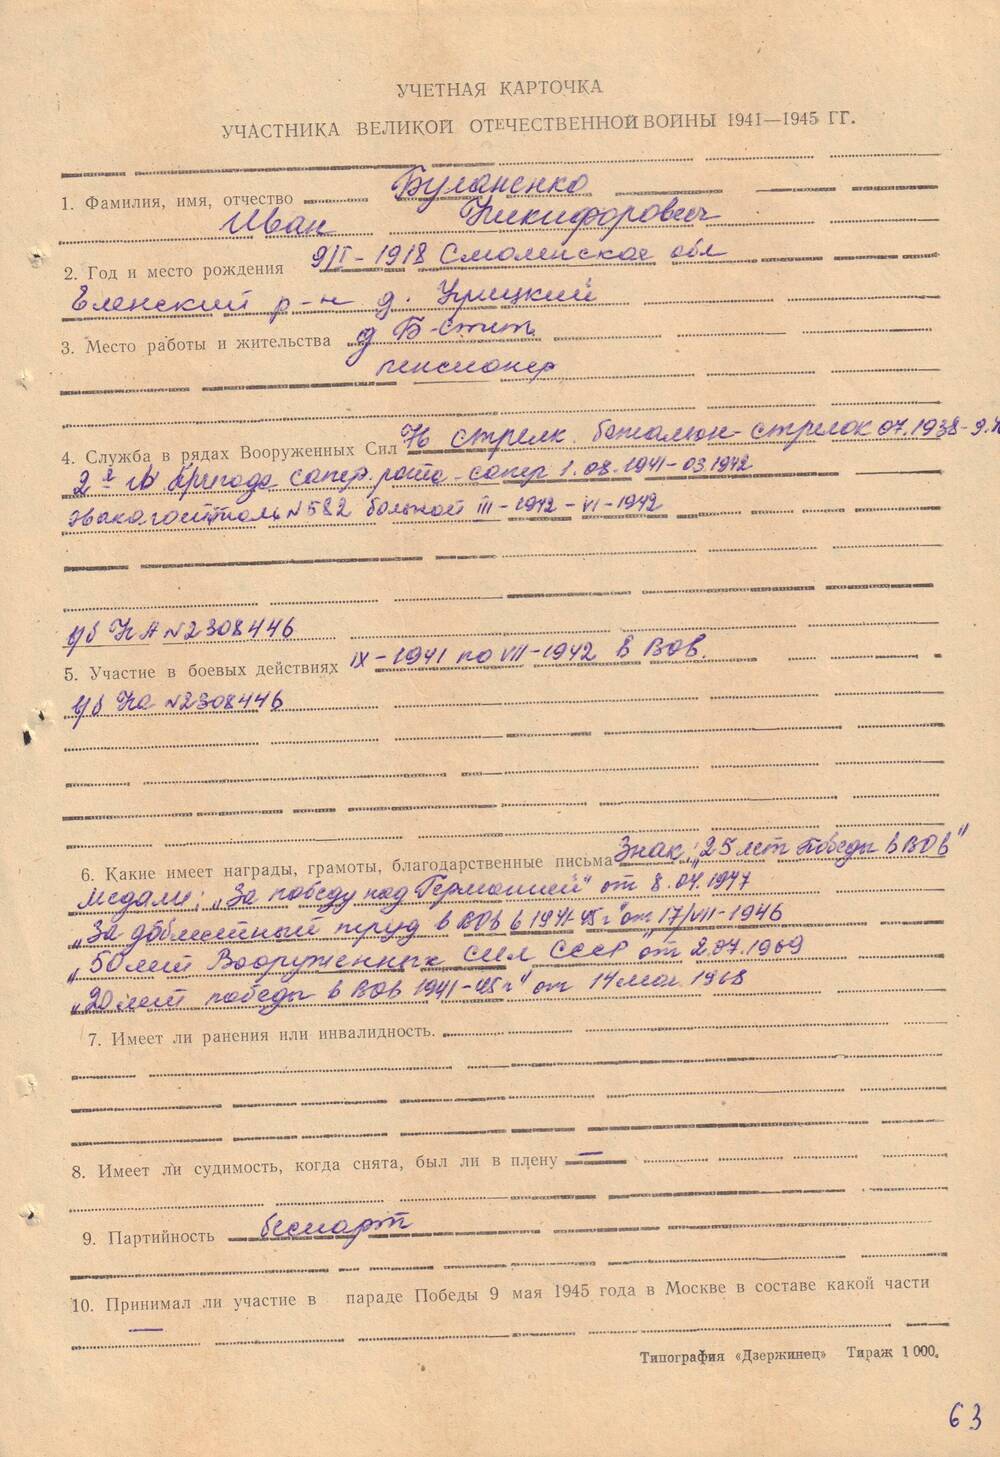 УЧЕТНАЯ КАРТОЧКА
УЧАСТНИКА ВЕЛИКОЙ ОТЕЧЕСТВЕННОЙ ВОЙНЫ 1941—1945 ГГ.
1. Фамилия, имя, отчество Буланенко
Иван Никифорович
2. Год и место рождения 9/II-1918 Смоленская обл
Еленский р-н д. Урицкий
3. Место работы и жительства д Б-
пенсионер
4. Служба в рядах Вооруженных Сил 76 стрелк. батальон - стрелок 07.1938-9.
2я Бригада сапер. рота - сапер 1.08.1941-03.1942
эвакогоспиталь N 582 больной III-1942-VI-1942
уд НА N2308446
5. Участие в боевых действиях IX-1941 по VII-1942 в ВОВ.
Уд На N2308446
6. Какие имеет награды, грамоты, благодарственные письма Знак: „25 лет Победы в ВОВ"
Медали: „За победу над Германией" от 8.04.1947
„За доблестный труд в ВОВ в 1941-45 г" от 17/VII-1946
„50 лет Вооруженных сил СССР" от 2.07.1969
„20 лет победы в ВОВ 1941-45 г" от 14 мая 1968
7. Имеет ли ранения или инвалидность.
8. Имеет ли судимость, когда снята, был ли в плену —
9. Партийность беспарт
10. Принимал ли участие в параде Победы 9 мая 1945 года в Москве в составе какой части
—
Типография «Дзержинец» Тираж 1 000.
63